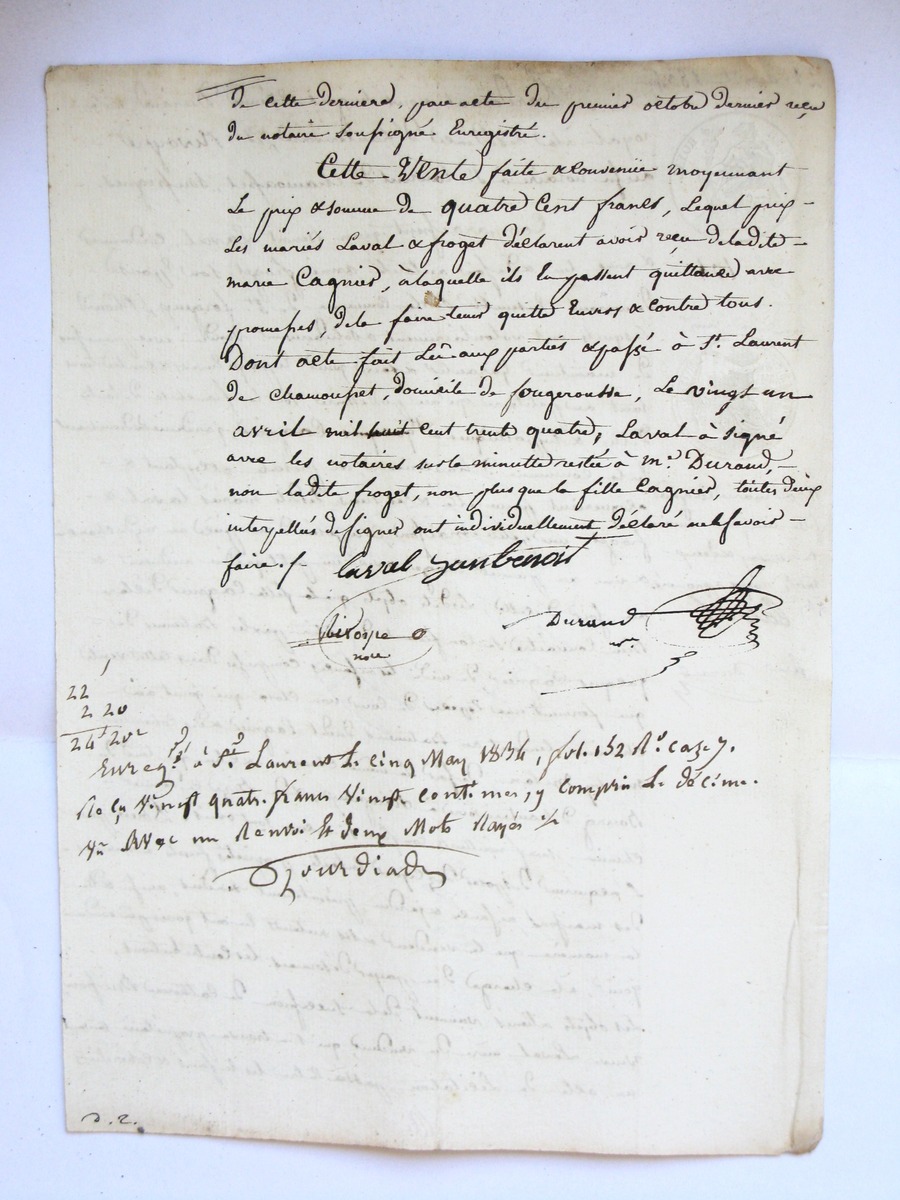 de cette derniere, par acte du premier octobre dernier reçu
du notaire soussigné Enregistré.
Cette Vente faite & convenüe moyennant
Le prix & somme de quatre Cent francs, Lequel prix
Les mariés Laval & froget déclarent avoir reçu de ladite
marie Cagnier, à laquelle ils En passent quittance avec
promesses, de la faire tenir quitte Envers & contre tous.
Dont acte fait Lû aux parties & passé à St. Laurent
de chamousset, domicile de fougerousse, Le vingt un
avril mil huit cent trente quatre, Laval à signé
avec les notaires sur la minutte restée à me. Durand,
non ladite froget, non plus que la fille Cagnier, toutes deux
interpellées de signer ont individuellement déclaré ne le savoir
faire ./.
laval jan benoit
Durand
nre.
22
2 20
24f 20c
Enregé. à St. Laurent le cinq May 1834, fol. 152 Ro. case 7.
Reçu vingt quatre francs vingt centimes, y compris le décime.
Avec un Renvoi et deux Mots Rayés ./.
D. 2.